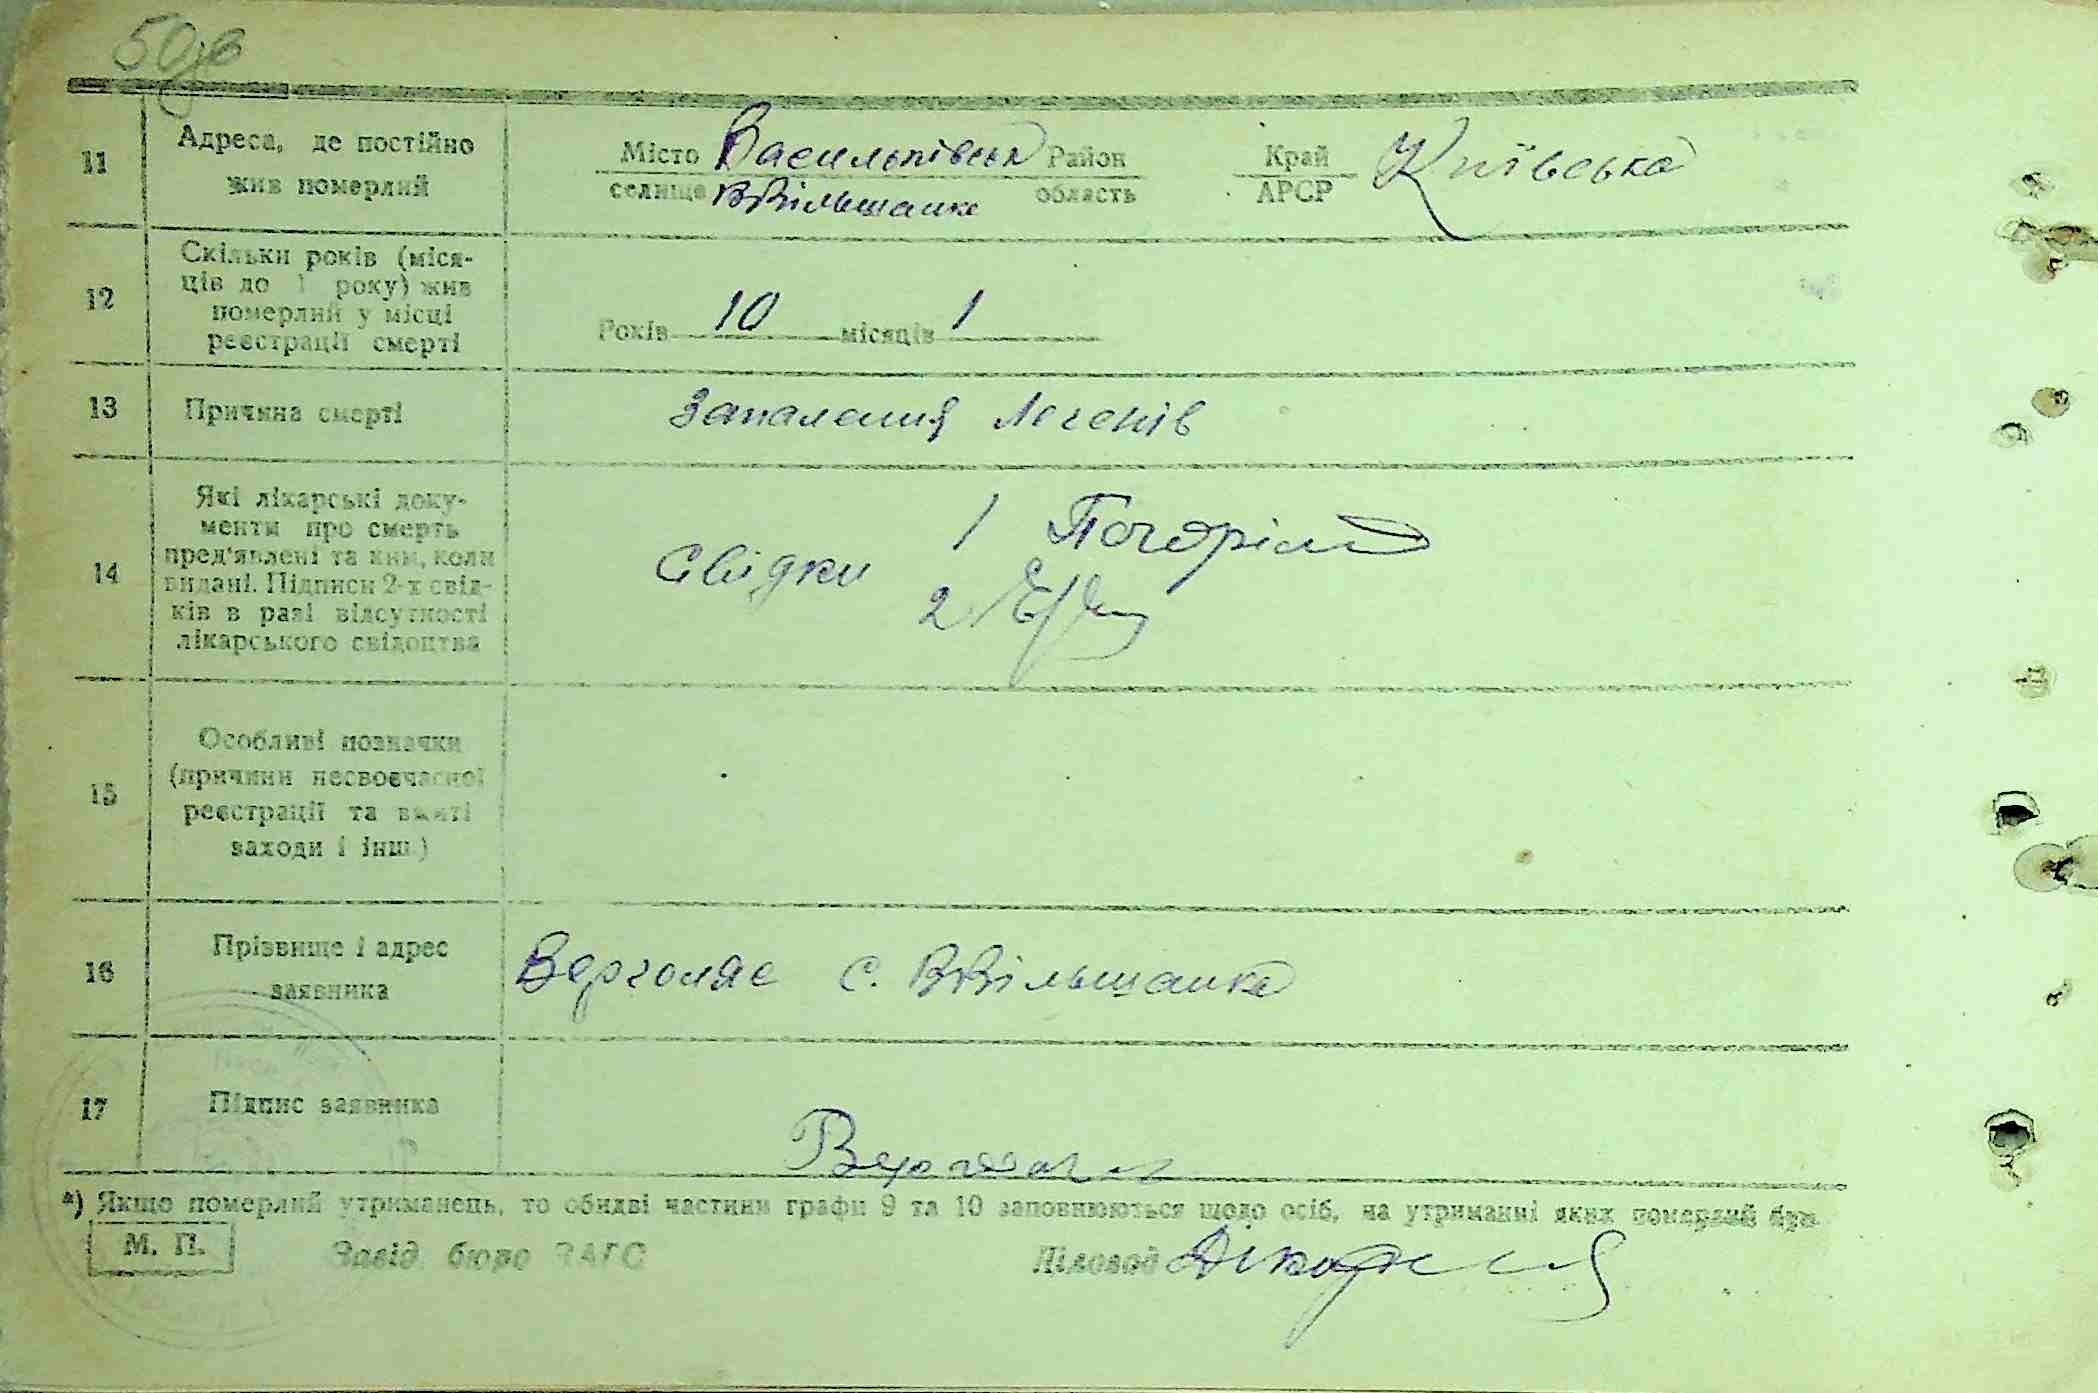 50
11 Адреса, де постійно
жив померлий
Місто Васильківськ Район Край Київська
селище ВВільшанка область АРСР
12 Скільки років (міся-
ців до 1 року) жив
померлий у місці
реєстрації смерті
Років 10 місяців 1
13 Причина смерті Запалення легенів
14 Які лікарські доку-
менти про смерть
пред'явлені та ким, коли
видані. Підписи 2-х свід-
ків в разі відсутності
лікарського свідоцтва
Свідки 1
2
15 Особливі позначки
(причини несвоєчасної
реєстрації та вжиті
заходи і інш.)
16 Прізвище і адрес
заявника
Верголяс с. ВВільшанка
17 Підпис заявника
*) Якщо померлий утриманець, то обидві частини графи 9 та 10 заповнюються щодо осіб, на утриманні яких померлий був
М. П. Завід. бюро ЗАГС Діловод